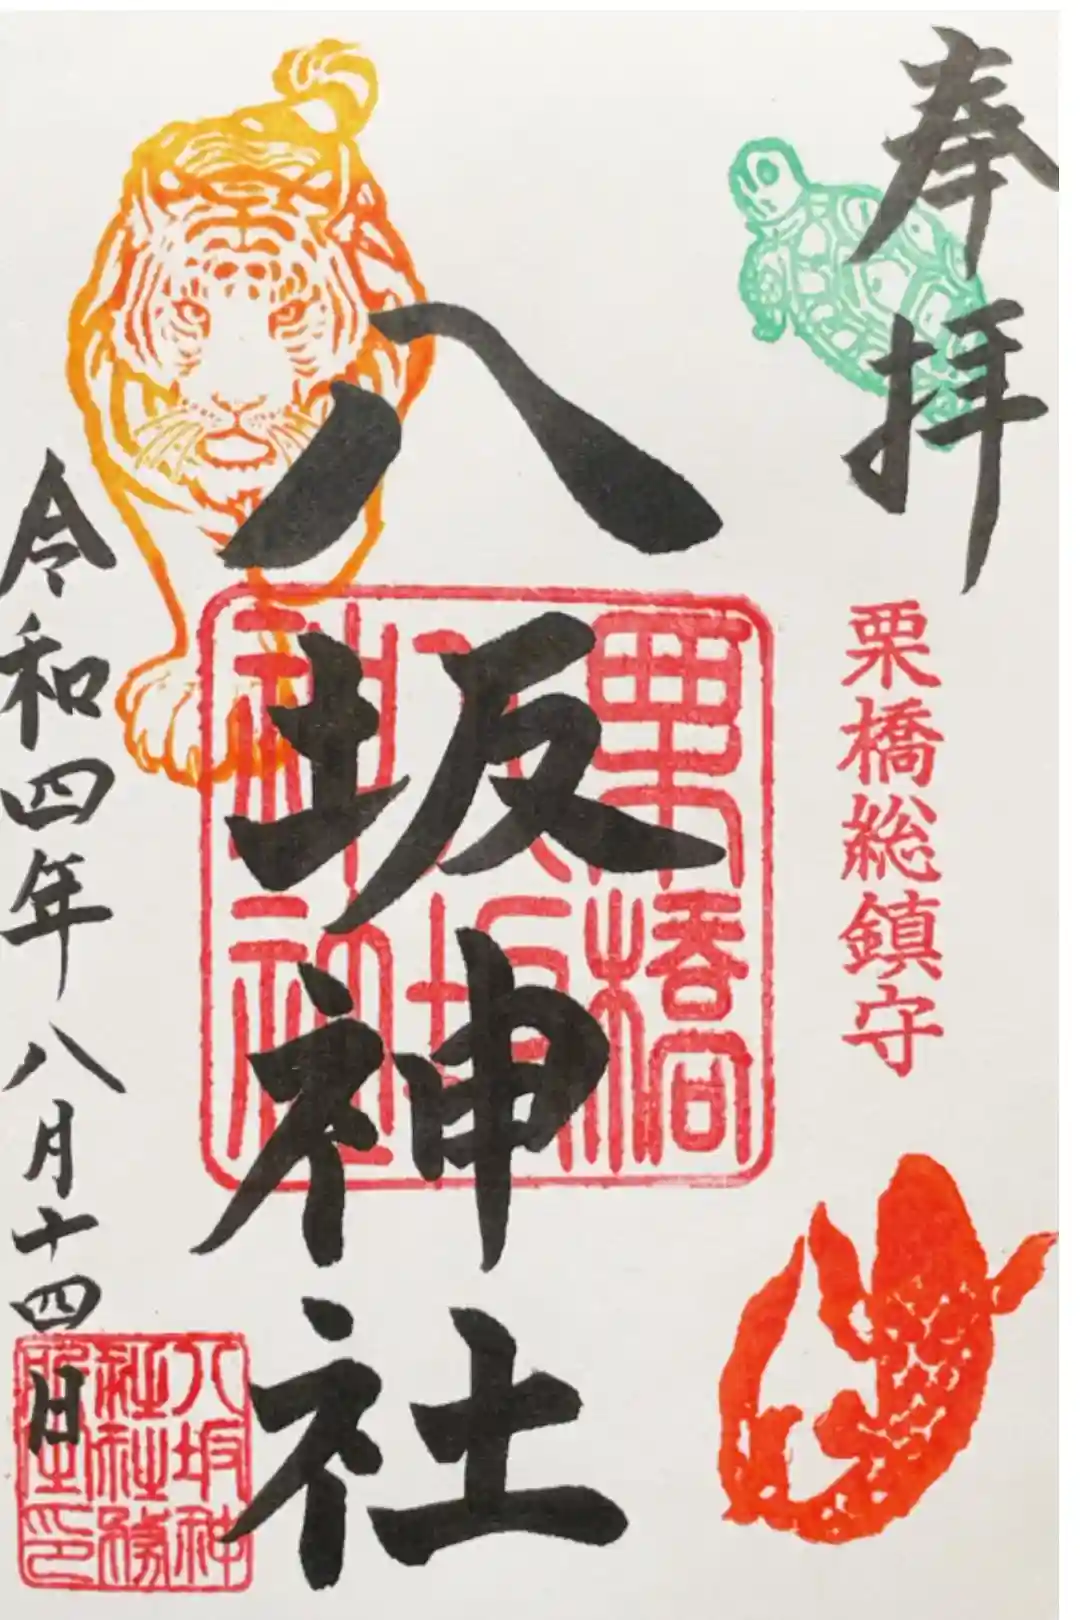 奉拝
栗橋総鎮守
八坂神社
栗橋
八坂
神社
令和四年八月十四日
八坂神